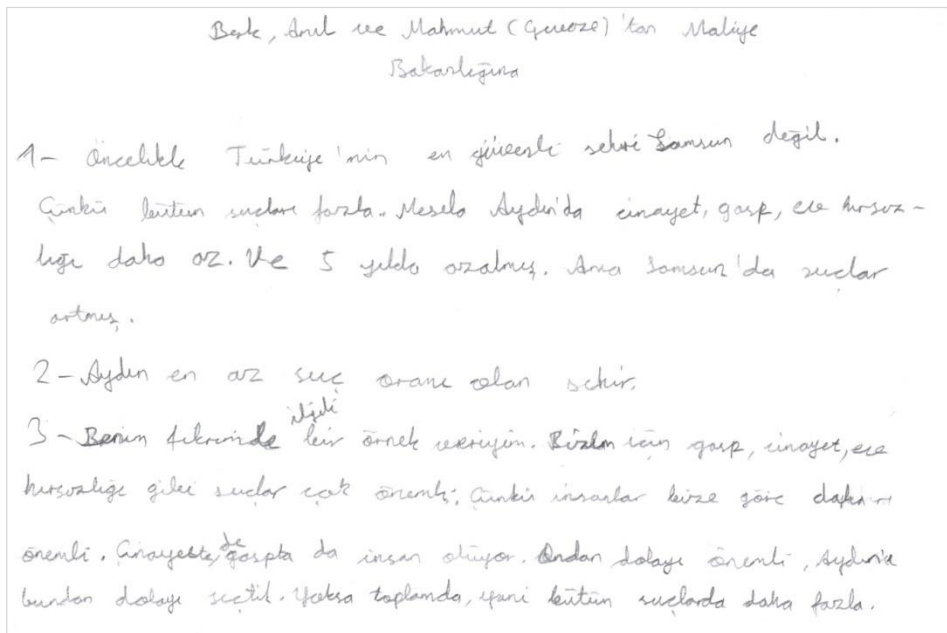 Berk, Anıl ve Mahmut ( )'tan Maliye
Bakanlığına
1- Öncelikle Türkiye'nin en güvenli şehri Samsun değil.
Çünkü bütün suçları fazla. Mesela Aydın'da cinayet, gasp, eve hırsız-
lığı daha az. Ve 5 yılda azalmış. Ama Samsun'da suçlar
artmış.
2- Aydın en az suç oranı olan şehir.
3- Benim fikrimde ilgili bir örnek vereyim. Bizim için gasp, cinayet, eve
hırsızlığı gibi suçlar çok önemli; Çünkü insanlar bize göre daha
önemli. Cinayette de gaspta da insan ölüyor. Ondan dolayı önemli, Aydın'ı
bundan dolayı seçtik. Yoksa toplamda, yani bütün suçlarda daha fazla.